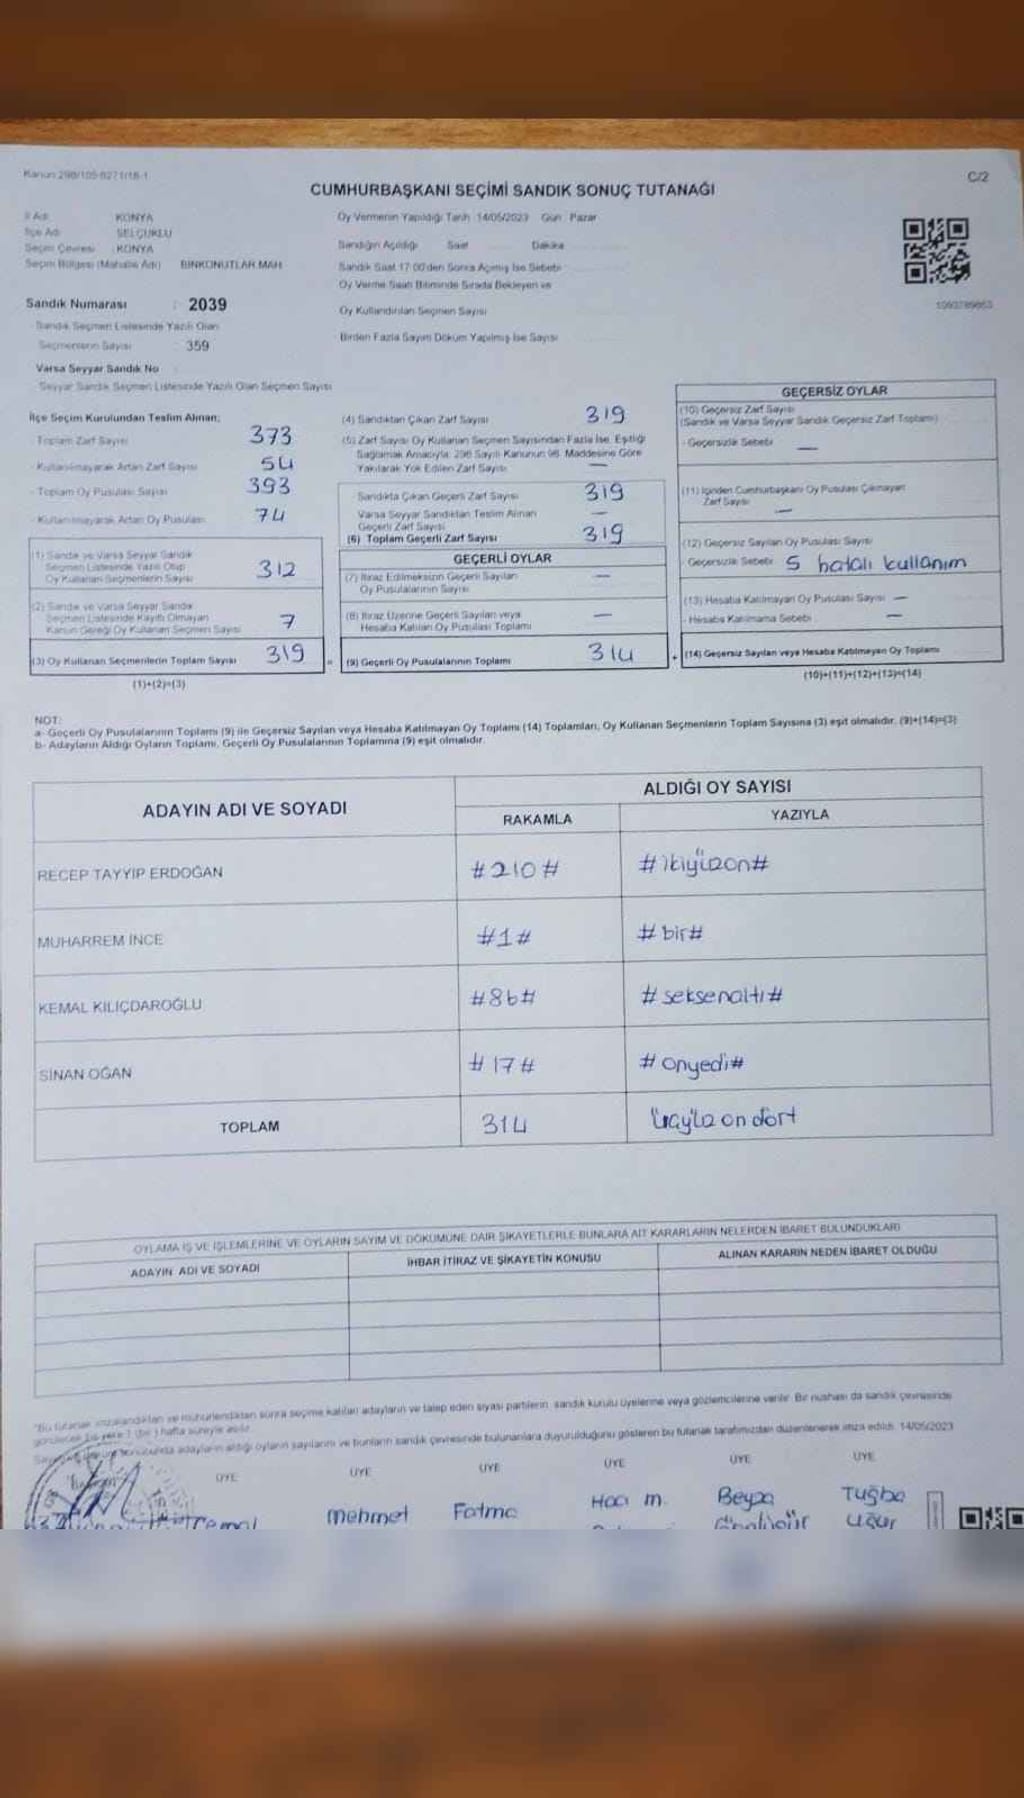 Kanun 298/105-6271/18-1
C/2
CUMHURBAŞKANI SEÇİMİ SANDIK SONUÇ TUTANAĞI
İl Adı KONYA
İlçe Adı SELÇUKLU
Seçim Çevresi KONYA
Seçim Bölgesi (Mahalle Adı) BİNKONUTLAR MAH
Sandık Numarası : 2039
Sandık Seçmen Listesinde Yazılı Olan
Seçmenlerin Sayısı 359
Varsa Seyyar Sandık No
Seyyar Sandık Seçmen Listesinde Yazılı Olan Seçmen Sayısı
Oy Vermenin Yapıldığı Tarih 14/05/2023 Gün Pazar
Sandığın Açıldığı Saat Dakika
Sandık Saat 17:00'den Sonra Açılmış İse Sebebi
Oy Verme Saati Bitiminde Sırada Bekleyen ve
Oy Kullandırılan Seçmen Sayısı
Birden Fazla Sayım Döküm Yapılmış İse Sayısı
İlçe Seçim Kurulundan Teslim Alınan;
Toplam Zarf Sayısı 373
Kullanılmayarak Artan Zarf Sayısı 54
Toplam Oy Pusulası Sayısı 393
Kullanılmayarak Artan Oy Pusulası 74
(1) Sandık ve Varsa Seyyar Sandık
Seçmen Listesinde Yazılı Olup
Oy Kullanan Seçmenlerin Sayısı 312
(2) Sandık ve Varsa Seyyar Sandık
Seçmen Listesinde Kayıtlı Olmayan
Kanun Gereği Oy Kullanan Seçmen Sayısı 7
(3) Oy Kullanan Seçmenlerin Toplam Sayısı 319
(1)+(2)=(3)
(4) Sandıktan Çıkan Zarf Sayısı 319
(5) Zarf Sayısı Oy Kullanan Seçmen Sayısından Fazla İse, Eşitliği
Sağlamak Amacıyla, 298 Sayılı Kanunun 98. Maddesine Göre
Yakılarak Yok Edilen Zarf Sayısı —
Sandıkta Çıkan Geçerli Zarf Sayısı 319
Varsa Seyyar Sandıktan Teslim Alınan
Geçerli Zarf Sayısı —
(6) Toplam Geçerli Zarf Sayısı 319
GEÇERLİ OYLAR
(7) İtiraz Edilmeksizin Geçerli Sayılan
Oy Pusulalarının Sayısı —
(8) İtiraz Üzerine Geçerli Sayılan veya
Hesaba Katılan Oy Pusulası Toplamı —
= (9) Geçerli Oy Pusulalarının Toplamı 314
GEÇERSİZ OYLAR
(10) Geçersiz Zarf Sayısı
(Sandık ve Varsa Seyyar Sandık Geçersiz Zarf Toplamı)
- Geçersizlik Sebebi —
(11) İçinden Cumhurbaşkanı Oy Pusulası Çıkmayan
Zarf Sayısı —
(12) Geçersiz Sayılan Oy Pusulası Sayısı
- Geçersizlik Sebebi 5 hatalı kullanım
(13) Hesaba Katılmayan Oy Pusulası Sayısı —
- Hesaba Katılmama Sebebi —
+ (14) Geçersiz Sayılan veya Hesaba Katılmayan Oy Toplamı
(10)+(11)+(12)+(13)=(14)
NOT:
a- Geçerli Oy Pusulalarının Toplamı (9) ile Geçersiz Sayılan veya Hesaba Katılmayan Oy Toplamı (14) Toplamları, Oy Kullanan Seçmenlerin Toplam Sayısına (3) eşit olmalıdır. (9)+(14)=(3)
b- Adayların Aldığı Oyların Toplamı, Geçerli Oy Pusulalarının Toplamına (9) eşit olmalıdır.
ADAYIN ADI VE SOYADI
ALDIĞI OY SAYISI
RAKAMLA YAZIYLA
RECEP TAYYİP ERDOĞAN #210# #ikiyüzon#
MUHARREM İNCE #1# #bir#
KEMAL KILIÇDAROĞLU #86# #seksenaltı#
SİNAN OĞAN #17# #onyedi#
TOPLAM 314 üçyüz on dört
OYLAMA İŞ VE İŞLEMLERİNE VE OYLARIN SAYIM VE DÖKÜMÜNE DAİR ŞİKAYETLERLE BUNLARA AİT KARARLARIN NELERDEN İBARET BULUNDUKLARI
ADAYIN ADI VE SOYADI İHBAR İTİRAZ VE ŞİKAYETİN KONUSU ALINAN KARARIN NEDEN İBARET OLDUĞU
"Bu tutanak imzalandıktan ve mühürlendikten sonra seçime katılan adayların ve talep eden siyasi partilerin, sandık kurulu üyelerine veya gözlemcilerine verilir. Bir nüshası da sandık çevresinde
görülecek bir yere 1 (bir) hafta süreyle asılır.
sonucunda adayların aldığı oyların sayılarını ve bunların sandık çevresinde bulunanlara duyurulduğunu gösteren bu tutanak tarafımızdan düzenlenerek imza edildi. 14/05/2023
ÜYE ÜYE ÜYE ÜYE ÜYE ÜYE
Mehmet Fatma Hacı m. Beyza Tuğba
Uğur